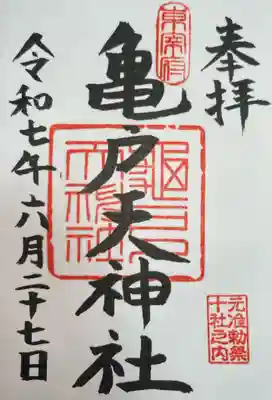 奉拝
元准勅祭
十社之内
東宰府
亀戸天神社
令和七年六月二十七日